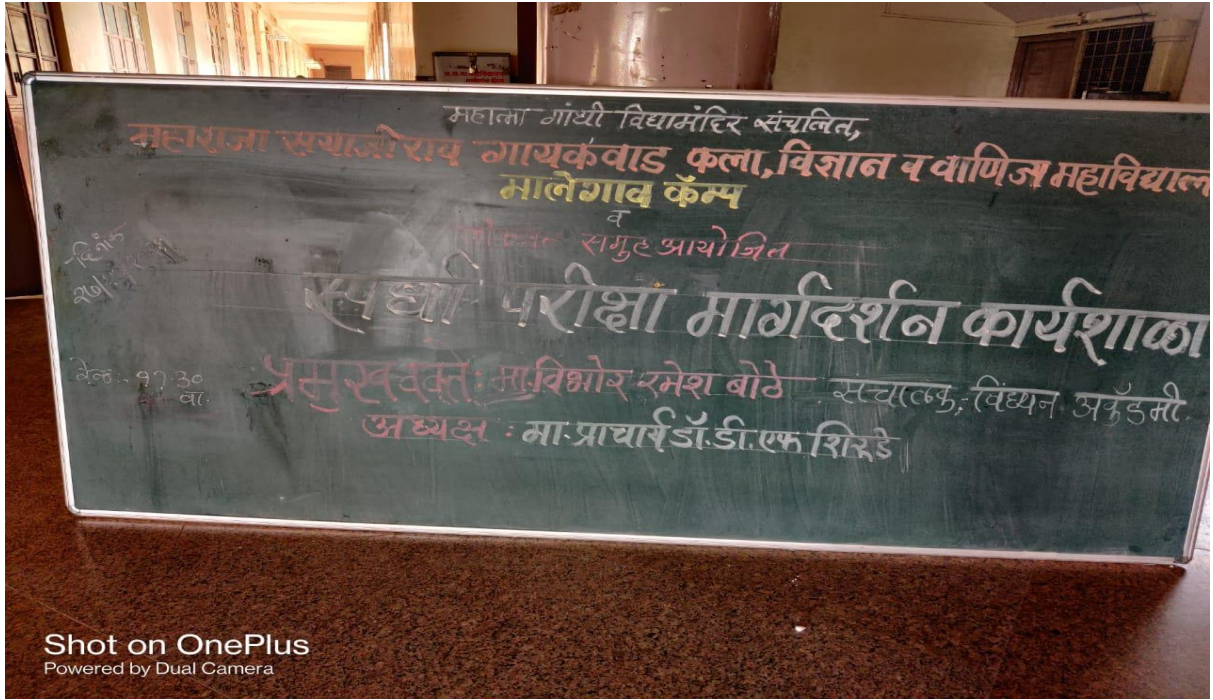 महात्मा गांधी विद्यामंदिर संचलित,
महाराजा सयाजीराव गायकवाड कला, विज्ञान व वाणिज्य महाविद्याल
मालेगाव कॅम्प
व
समुह आयोजित
दिनांक
स्पर्धा परीक्षा मार्गदर्शन कार्यशाळा
वेळ:- ११:३० वा.
प्रमुख वक्ते: मा. विभोर रमेश बोठे संचालक, विंध्यन अकॅडमी.
अध्यक्ष : मा. प्राचार्य डॉ. डी. एफ शिरुडे
Shot on OnePlus
Powered by Dual Camera